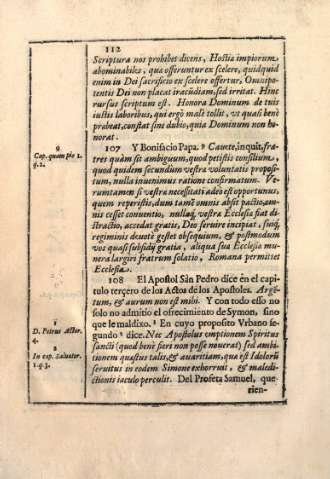 112
Scriptura nos prohibet dicens, Hostia impiorum
abominabiles, quæ offeruntur ex scelere, quidquid
enim in Dei sacrificio ex scelere offertur, Omnipo-
tentis Dei non placat iracũdiam, sed irritat. Hinc
rursus scriptum est. Honora Dominum de tuis
iustis laboribus, qui ergò malè tollit, vt quasi benè
præbeat, constat sine dubio, quia Dominum non ho-
norat.
107 Y Bonifacio Papa. 9 Cauete, inquit, fra-
tres quàm sit ambiguum, quod petistis consilium,
quod quidem secundùm vestra voluntatis proposi-
tum, nulla inuenimus ratione confirmatum. Ve-
rumtamen si vestra necessitati adeò est opportunus,
quem reperistis, dum tamẽ omnis absit pactio, om-
nis cesset conuentio, nullaq, vestra Ecclesia fiat di-
stractio, accedat gratis, Deo seruire incipiat, suisq,
regiminis deuotè gestet obsequium. & postmodum
vos quasi subsidij gratia, aliqua sua Ecclesia mune-
ra largiri fratrum solatio, Romana permittet
Ecclesia.
108 El Apostol Sãn Pedro dice en el capi
tulo tercero de los Actos de los Apostoles. Argẽ-
tum, & aurum non est mihi. Y con todo esso no
solo no admitio el ofrecimiento de Symon, sino
que le maldixo. 1 En cuyo proposito Vrbano se-
gundo 2 dice. Nec Apostolus emptionem Spiritus
sancti (quod benè fieri non posse nouerat) sed ambi-
tionem quæstus talis, & auaritiam, quæ est Idolorũ
seruitus in eodem Simone exhorruit, & maledi-
ctionis iaculo perculit. Del Profeta Samuel, que
rien-
9
Cap. quam pio 1.
q. 2.
1
D. Petrus Actor.
4.
2
In cap. Saluator.
1. q. 3.